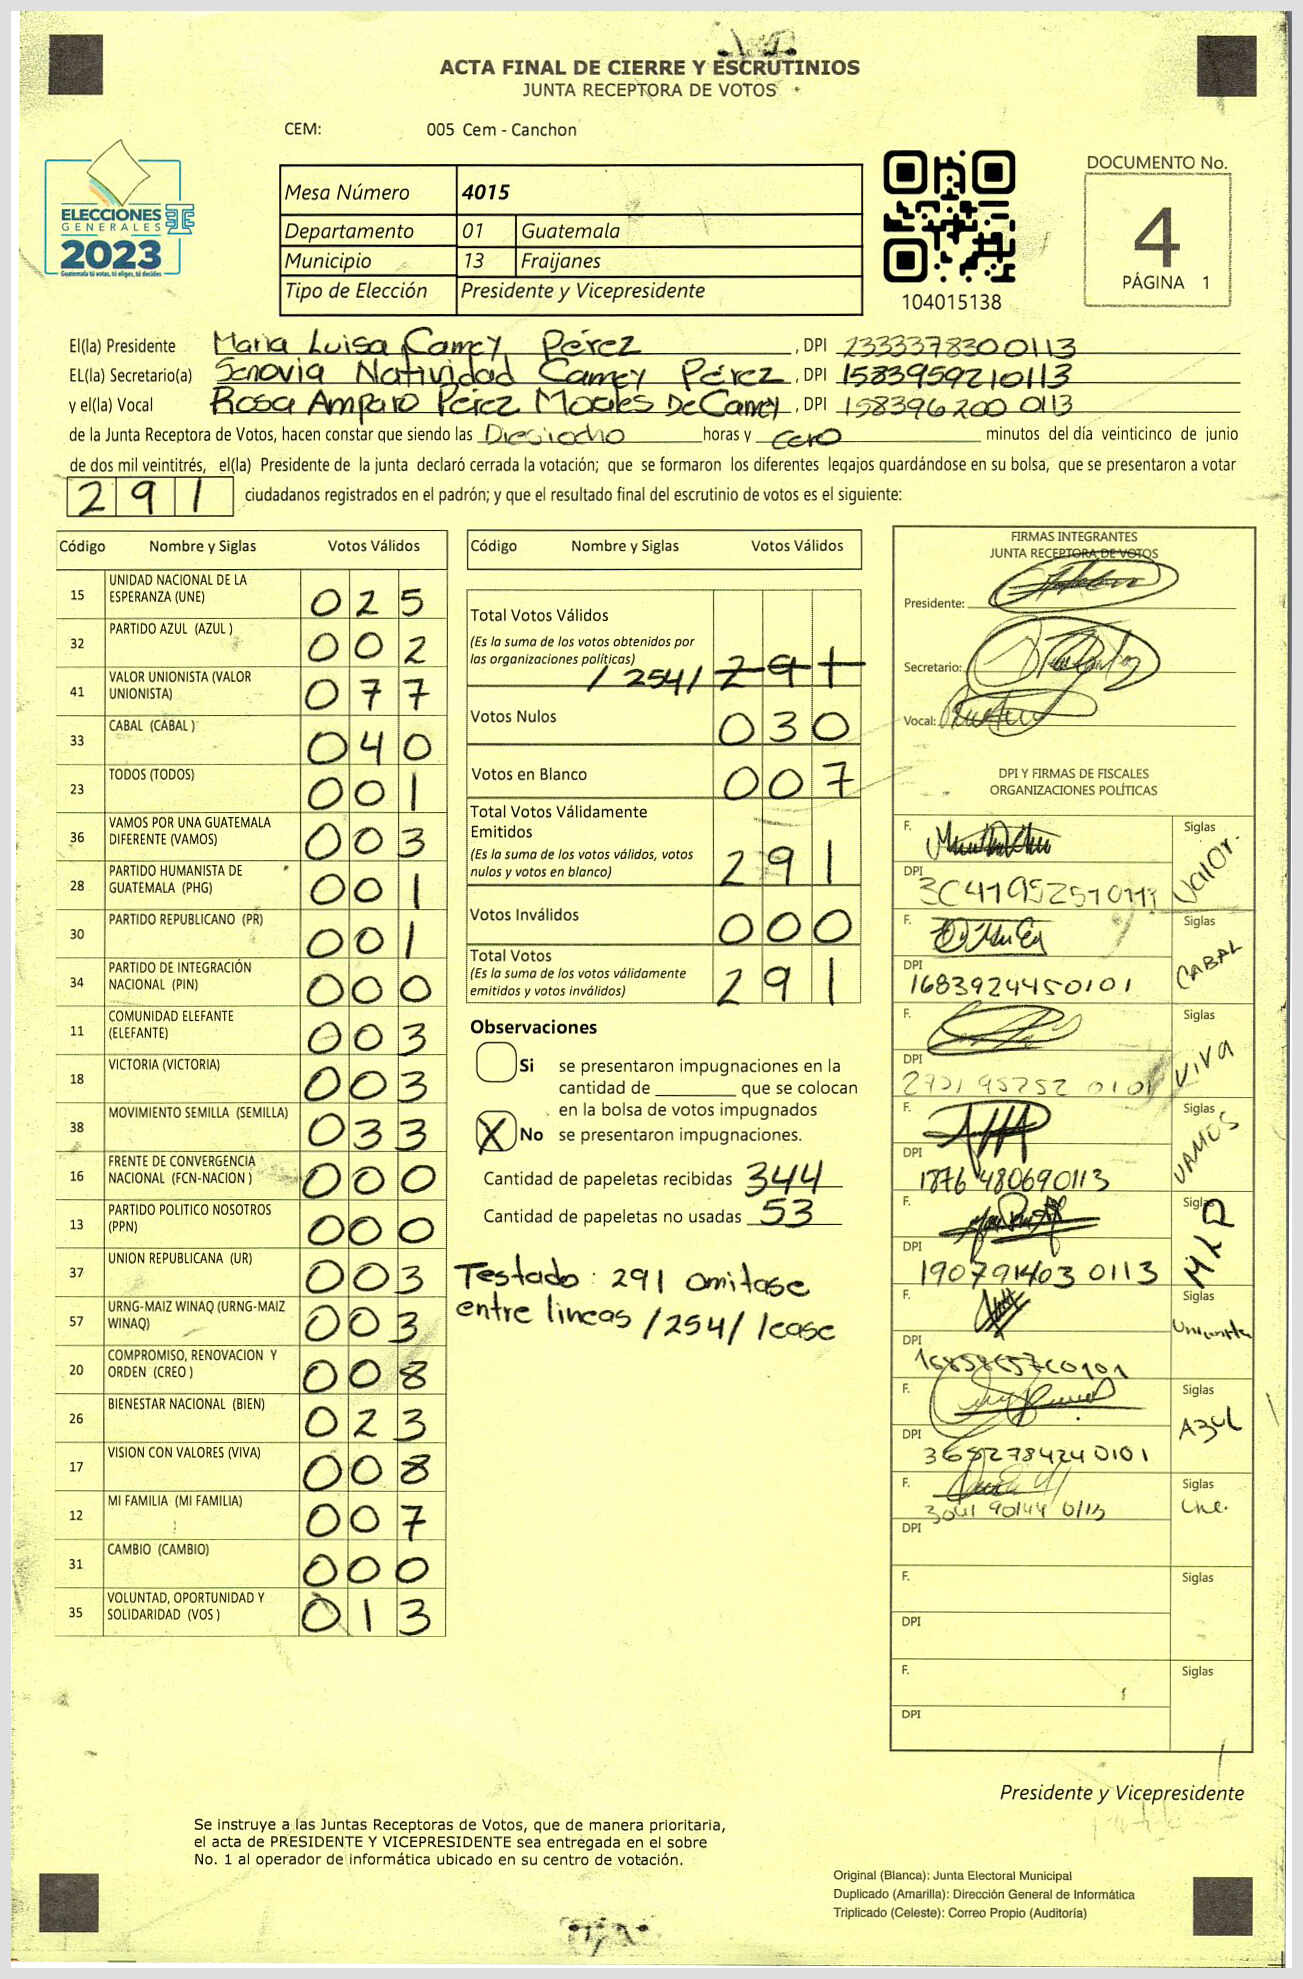 ACTA FINAL DE CIERRE Y ESCRUTINIOS
JUNTA RECEPTORA DE VOTOS
CEM: 005 Cem - Canchon
ELECCIONES
GENERALES
2023
Guatemala tú votas, tú eliges, tú decides
Mesa Número 4015
Departamento 01 Guatemala
Municipio 13 Fraijanes
Tipo de Elección Presidente y Vicepresidente
104015138
DOCUMENTO No.
4
PÁGINA 1
El(la) Presidente Maria Luisa Camey Pérez , DPI 2333378300113
EL(la) Secretario(a) Senovia Natividad Camey Pérez , DPI 1583959210113
y el(la) Vocal Rosa Amparo Pérez Morales De Camey , DPI 158396200 0113
de la Junta Receptora de Votos, hacen constar que siendo las Dieciocho horas y cero minutos del día veinticinco de junio
de dos mil veintitrés, el(la) Presidente de la junta declaró cerrada la votación; que se formaron los diferentes legajos guardándose en su bolsa, que se presentaron a votar
291 ciudadanos registrados en el padrón; y que el resultado final del escrutinio de votos es el siguiente:
Código Nombre y Siglas Votos Válidos
15 UNIDAD NACIONAL DE LA ESPERANZA (UNE) 025
32 PARTIDO AZUL (AZUL ) 002
41 VALOR UNIONISTA (VALOR UNIONISTA) 077
33 CABAL (CABAL ) 040
23 TODOS (TODOS) 001
36 VAMOS POR UNA GUATEMALA DIFERENTE (VAMOS) 003
28 PARTIDO HUMANISTA DE GUATEMALA (PHG) 001
30 PARTIDO REPUBLICANO (PR) 001
34 PARTIDO DE INTEGRACIÓN NACIONAL (PIN) 000
11 COMUNIDAD ELEFANTE (ELEFANTE) 003
18 VICTORIA (VICTORIA) 003
38 MOVIMIENTO SEMILLA (SEMILLA) 033
16 FRENTE DE CONVERGENCIA NACIONAL (FCN-NACION ) 000
13 PARTIDO POLITICO NOSOTROS (PPN) 000
37 UNION REPUBLICANA (UR) 003
57 URNG-MAIZ WINAQ (URNG-MAIZ WINAQ) 003
20 COMPROMISO, RENOVACION Y ORDEN (CREO ) 008
26 BIENESTAR NACIONAL (BIEN) 023
17 VISION CON VALORES (VIVA) 008
12 MI FAMILIA (MI FAMILIA) 007
31 CAMBIO (CAMBIO) 000
35 VOLUNTAD, OPORTUNIDAD Y SOLIDARIDAD (VOS ) 013
Código Nombre y Siglas Votos Válidos
Total Votos Válidos
(Es la suma de los votos obtenidos por
las organizaciones políticas)
/254/ 291
Votos Nulos 030
Votos en Blanco 007
Total Votos Válidamente
Emitidos
(Es la suma de los votos válidos, votos
nulos y votos en blanco) 291
Votos Inválidos 000
Total Votos
(Es la suma de los votos válidamente
emitidos y votos inválidos) 291
Observaciones
Si se presentaron impugnaciones en la
cantidad de ________ que se colocan
en la bolsa de votos impugnados
X No se presentaron impugnaciones.
Cantidad de papeletas recibidas 344
Cantidad de papeletas no usadas 53
Testado: 291 omitase
entre lineas /254/ lease
FIRMAS INTEGRANTES
JUNTA RECEPTORA DE VOTOS
Presidente:
Secretario:
Vocal:
DPI Y FIRMAS DE FISCALES
ORGANIZACIONES POLÍTICAS
F. Siglas Valor.
DPI
F. Siglas CABAL
DPI 1683924450101
F. Siglas VIVA
DPI
F. Siglas VAMOS
DPI 1876480690113
F. Siglas MLP
DPI 1907914030113
F. Siglas Unionista
DPI
F. Siglas Azul
DPI 3652784240101
F. Siglas Une.
DPI 3041 90144 0113
F. Siglas
DPI
F. Siglas
DPI
Presidente y Vicepresidente
Se instruye a las Juntas Receptoras de Votos, que de manera prioritaria,
el acta de PRESIDENTE Y VICEPRESIDENTE sea entregada en el sobre
No. 1 al operador de informática ubicado en su centro de votación.
Original (Blanca): Junta Electoral Municipal
Duplicado (Amarilla): Dirección General de Informática
Triplicado (Celeste): Correo Propio (Auditoría)